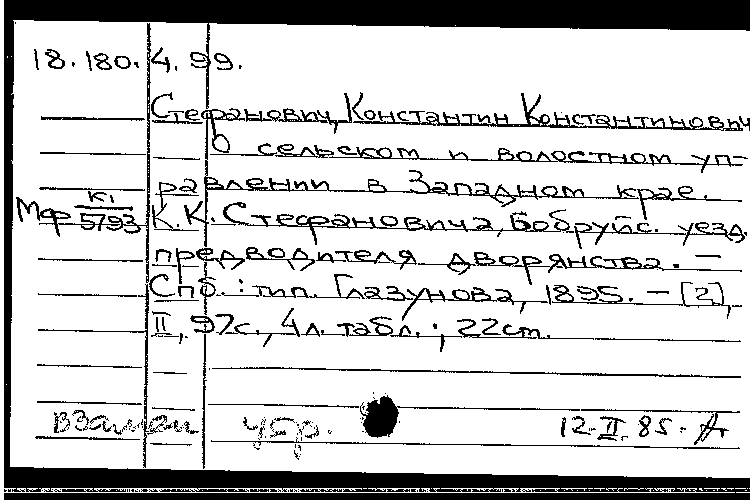 18.180.4.99.
Стефанович, Константин Константинович
О сельском и волостном уп-
равлении в Западном крае.
Мф К1/5793 К.К. Стефановича, Бобруйс. уезд.
предводителя дворянства. —
Спб.: тип. Глазунова, 1895. — [2],
II, 97с., 4л. табл.; 22cm.
взамен
12.II.85.